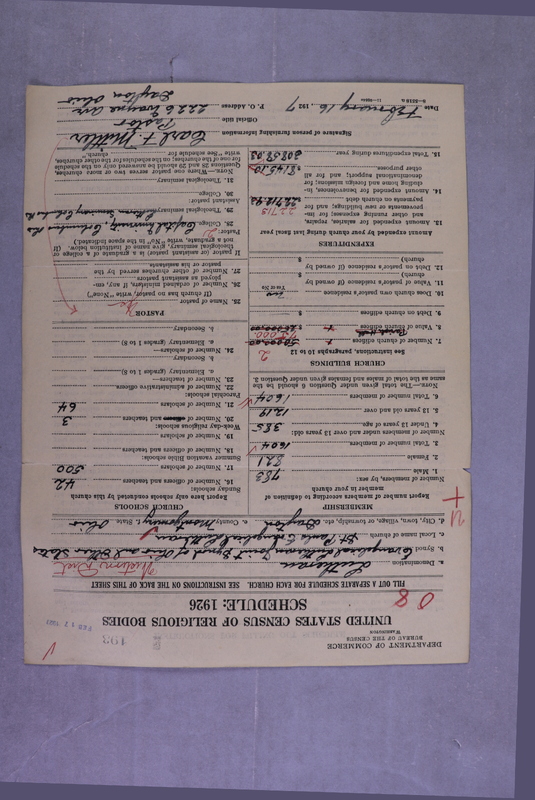 DEPARTMENT OF COMMERCE
BUREAU OF THE CENSUS
WASHINGTON
193
FEB 17 1927
UNITED STATES CENSUS OF RELIGIOUS BODIES
SCHEDULE: 1926
08
FILL OUT A SEPARATE SCHEDULE FOR EACH CHURCH. SEE INSTRUCTIONS ON THE BACK OF THIS SHEET
a. Denomination Lutheran Western Dist
b. Synod Evangelical Lutheran Joint Synod of Ohio and Other States
c. Local name of church St. Pauls Evangelical Lutheran
d. City, town, village, or township, etc. Dayton e. County Montgomery f. State Ohio
MEMBERSHIP
Report number of members according to definition of member in your church
Number of members, by sex:
1. Male 783
2. Female 821
3. Total number of members 1604
Number of members under and over 13 years old:
4. Under 13 years of age 385
5. 13 years old and over 1219
6. Total number of members 1604
NOTE.—The total given under Question 6 should be the same as the total of males and females given under Question 3.
CHURCH BUILDINGS
See instructions, paragraphs 10 to 12
7. Number of church edifices 2
8. Value of church edifices $
9. Debt on church edifices $
10. Does church own pastor's residence
Yes or No
11. Value of pastor's residence (if owned by church) $
12. Debt on pastor's residence (if owned by church) $
EXPENDITURES
Amount expended by your church during last year:
13. Amount expended for salaries, repairs, and other running expenses; for improvements or new buildings; and for payments on church debt 22,713
14. Amount expended for benevolences, including home and foreign missions; for denominational support; and for all other purposes
15. Total expenditures during year 30858.03
CHURCH SCHOOLS
Report here only schools conducted by this church
Sunday schools:
16. Number of officers and teachers 42
17. Number of scholars 500
Summer vacation Bible schools:
18. Number of officers and teachers
19. Number of scholars
Week-day religious schools:
20. Number of officers and teachers 3
21. Number of scholars 64
Parochial schools:
22. Number of administrative officers
23. Number of teachers—
a. Elementary (grades 1 to 8)
b. Secondary
24. Number of scholars—
a. Elementary (grades 1 to 8)
b. Secondary
PASTOR
25. Name of pastor
(If church has no pastor, write "None")
26. Number of ordained ministers, if any, employed as assistant pastors
27. Number of other churches served by the pastor or his assistants
If pastor (or assistant pastor) is a graduate of a college or theological seminary, give name of institution below. (If not a graduate, write "No" in the space indicated.)
Pastor:
28. College Capital University, Columbus O.
29. Theological seminary
Assistant pastor:
30. College
31. Theological seminary
NOTE.—Where one pastor serves two or more churches, Questions 28 and 29 should be answered only on the schedule for one of the churches; on the schedules for the other churches, write "See schedule for church."
Signature of person furnishing information Carl F. Mittler
Official title Pastor
Date February 16, 1927 P. O. Address 2226 Wayne Ave
Dayton Ohio